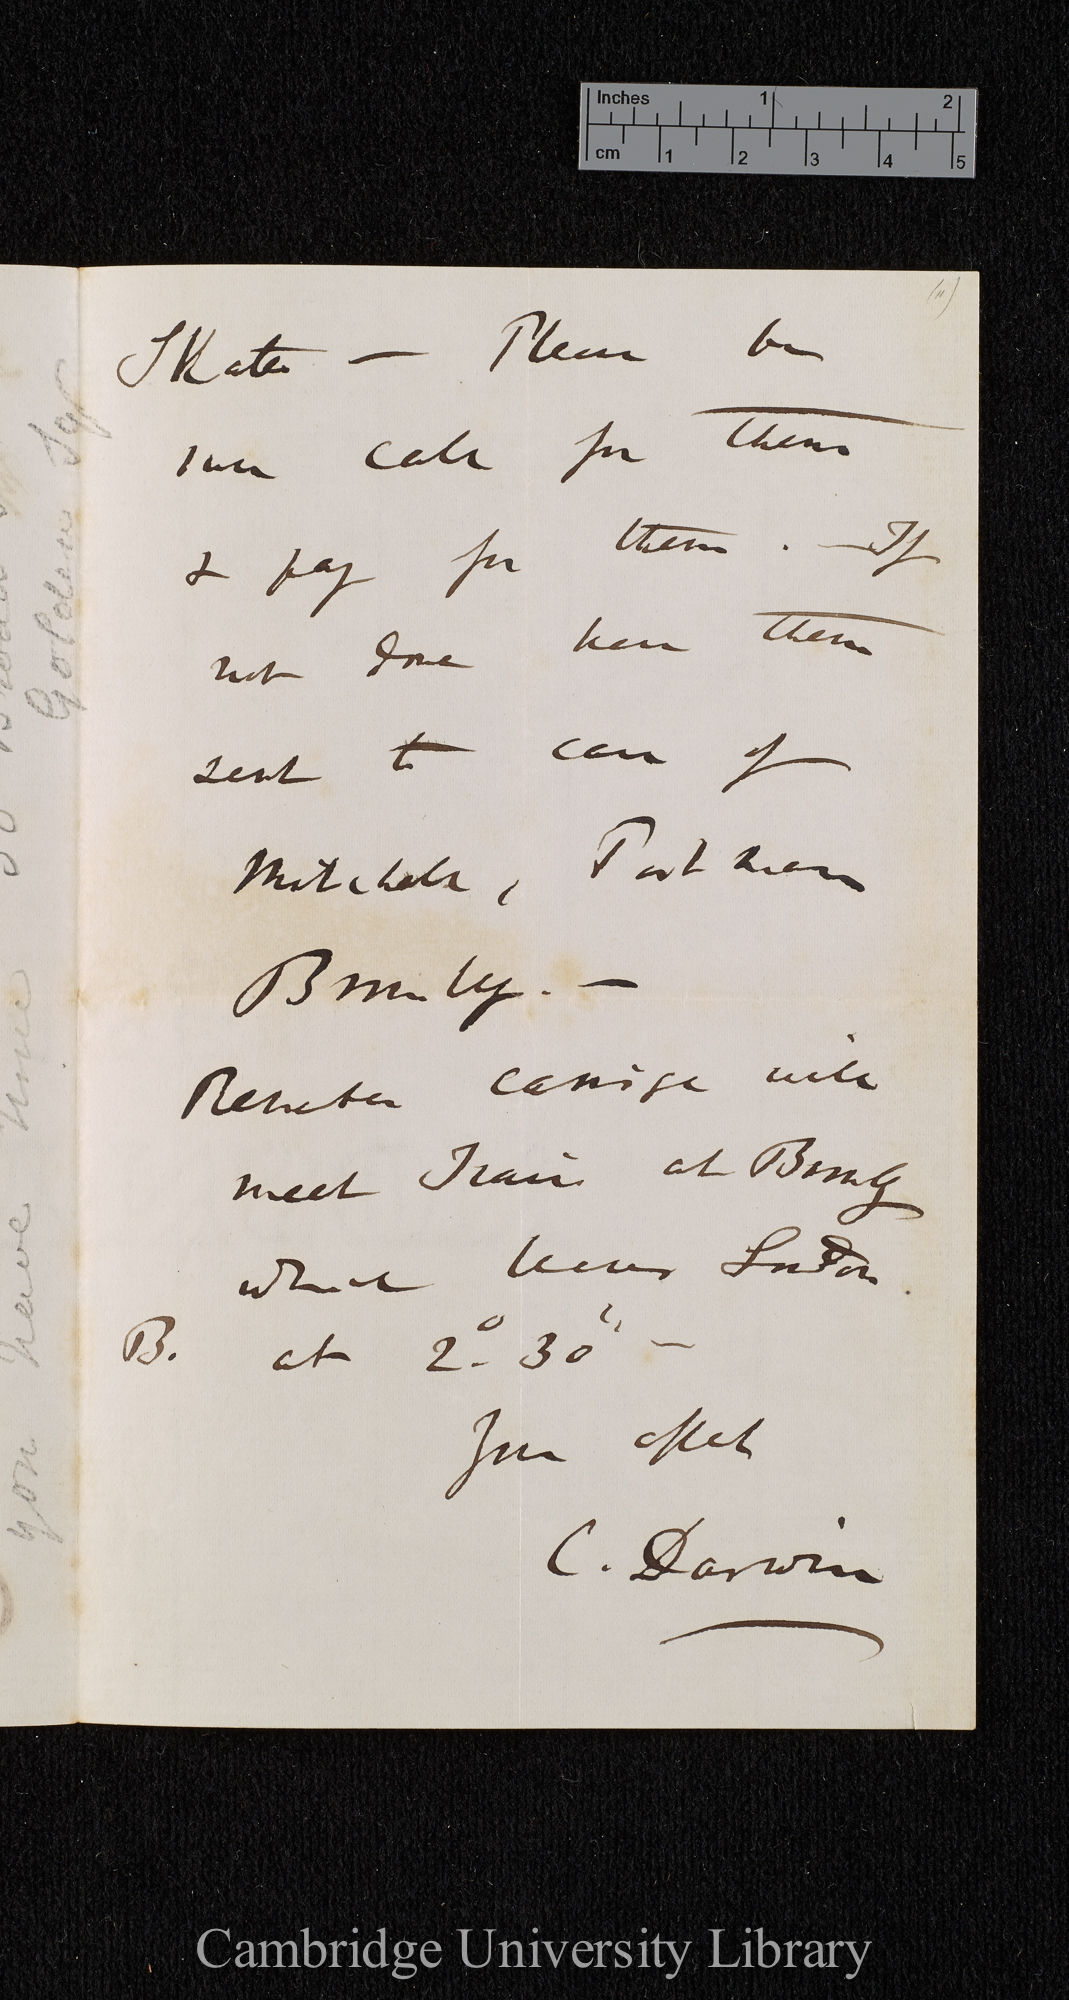 Inches 1 2
cm 1 2 3 4 5
Skates — Please be
sure call for them
& pay for them. — If
not done have them
sent to care of
Mitchell, Postman
Bromley. —
Remember carriage will
meet Train at Bromley
which leaves London
B. at 2°. 30'' —
Your affect
C. Darwin
Golden Sq
you have time
Cambridge University Library